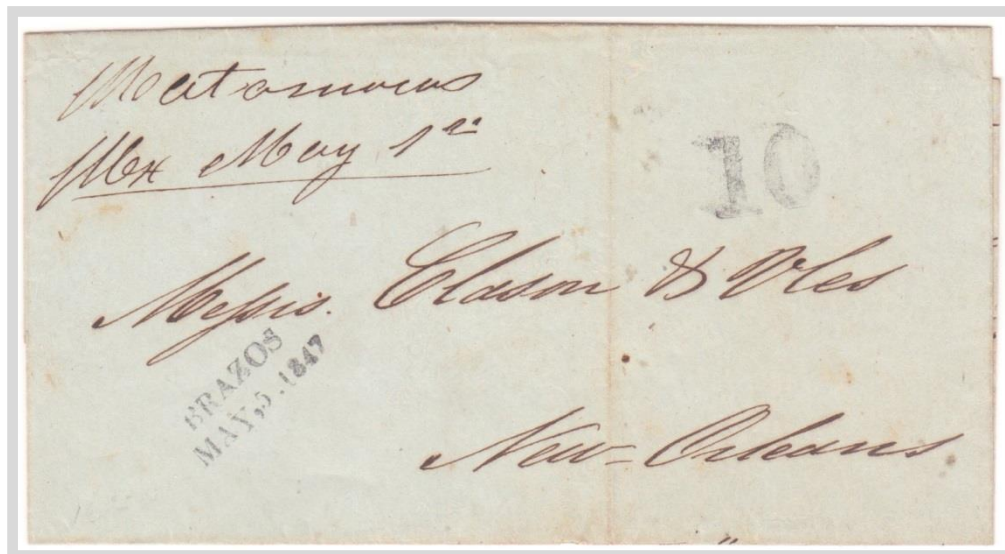 Matamoros
Mex May 1st
10
Messrs. Clason & Vles
BRAZOS
MAY, 5. 1847
New-Orleans